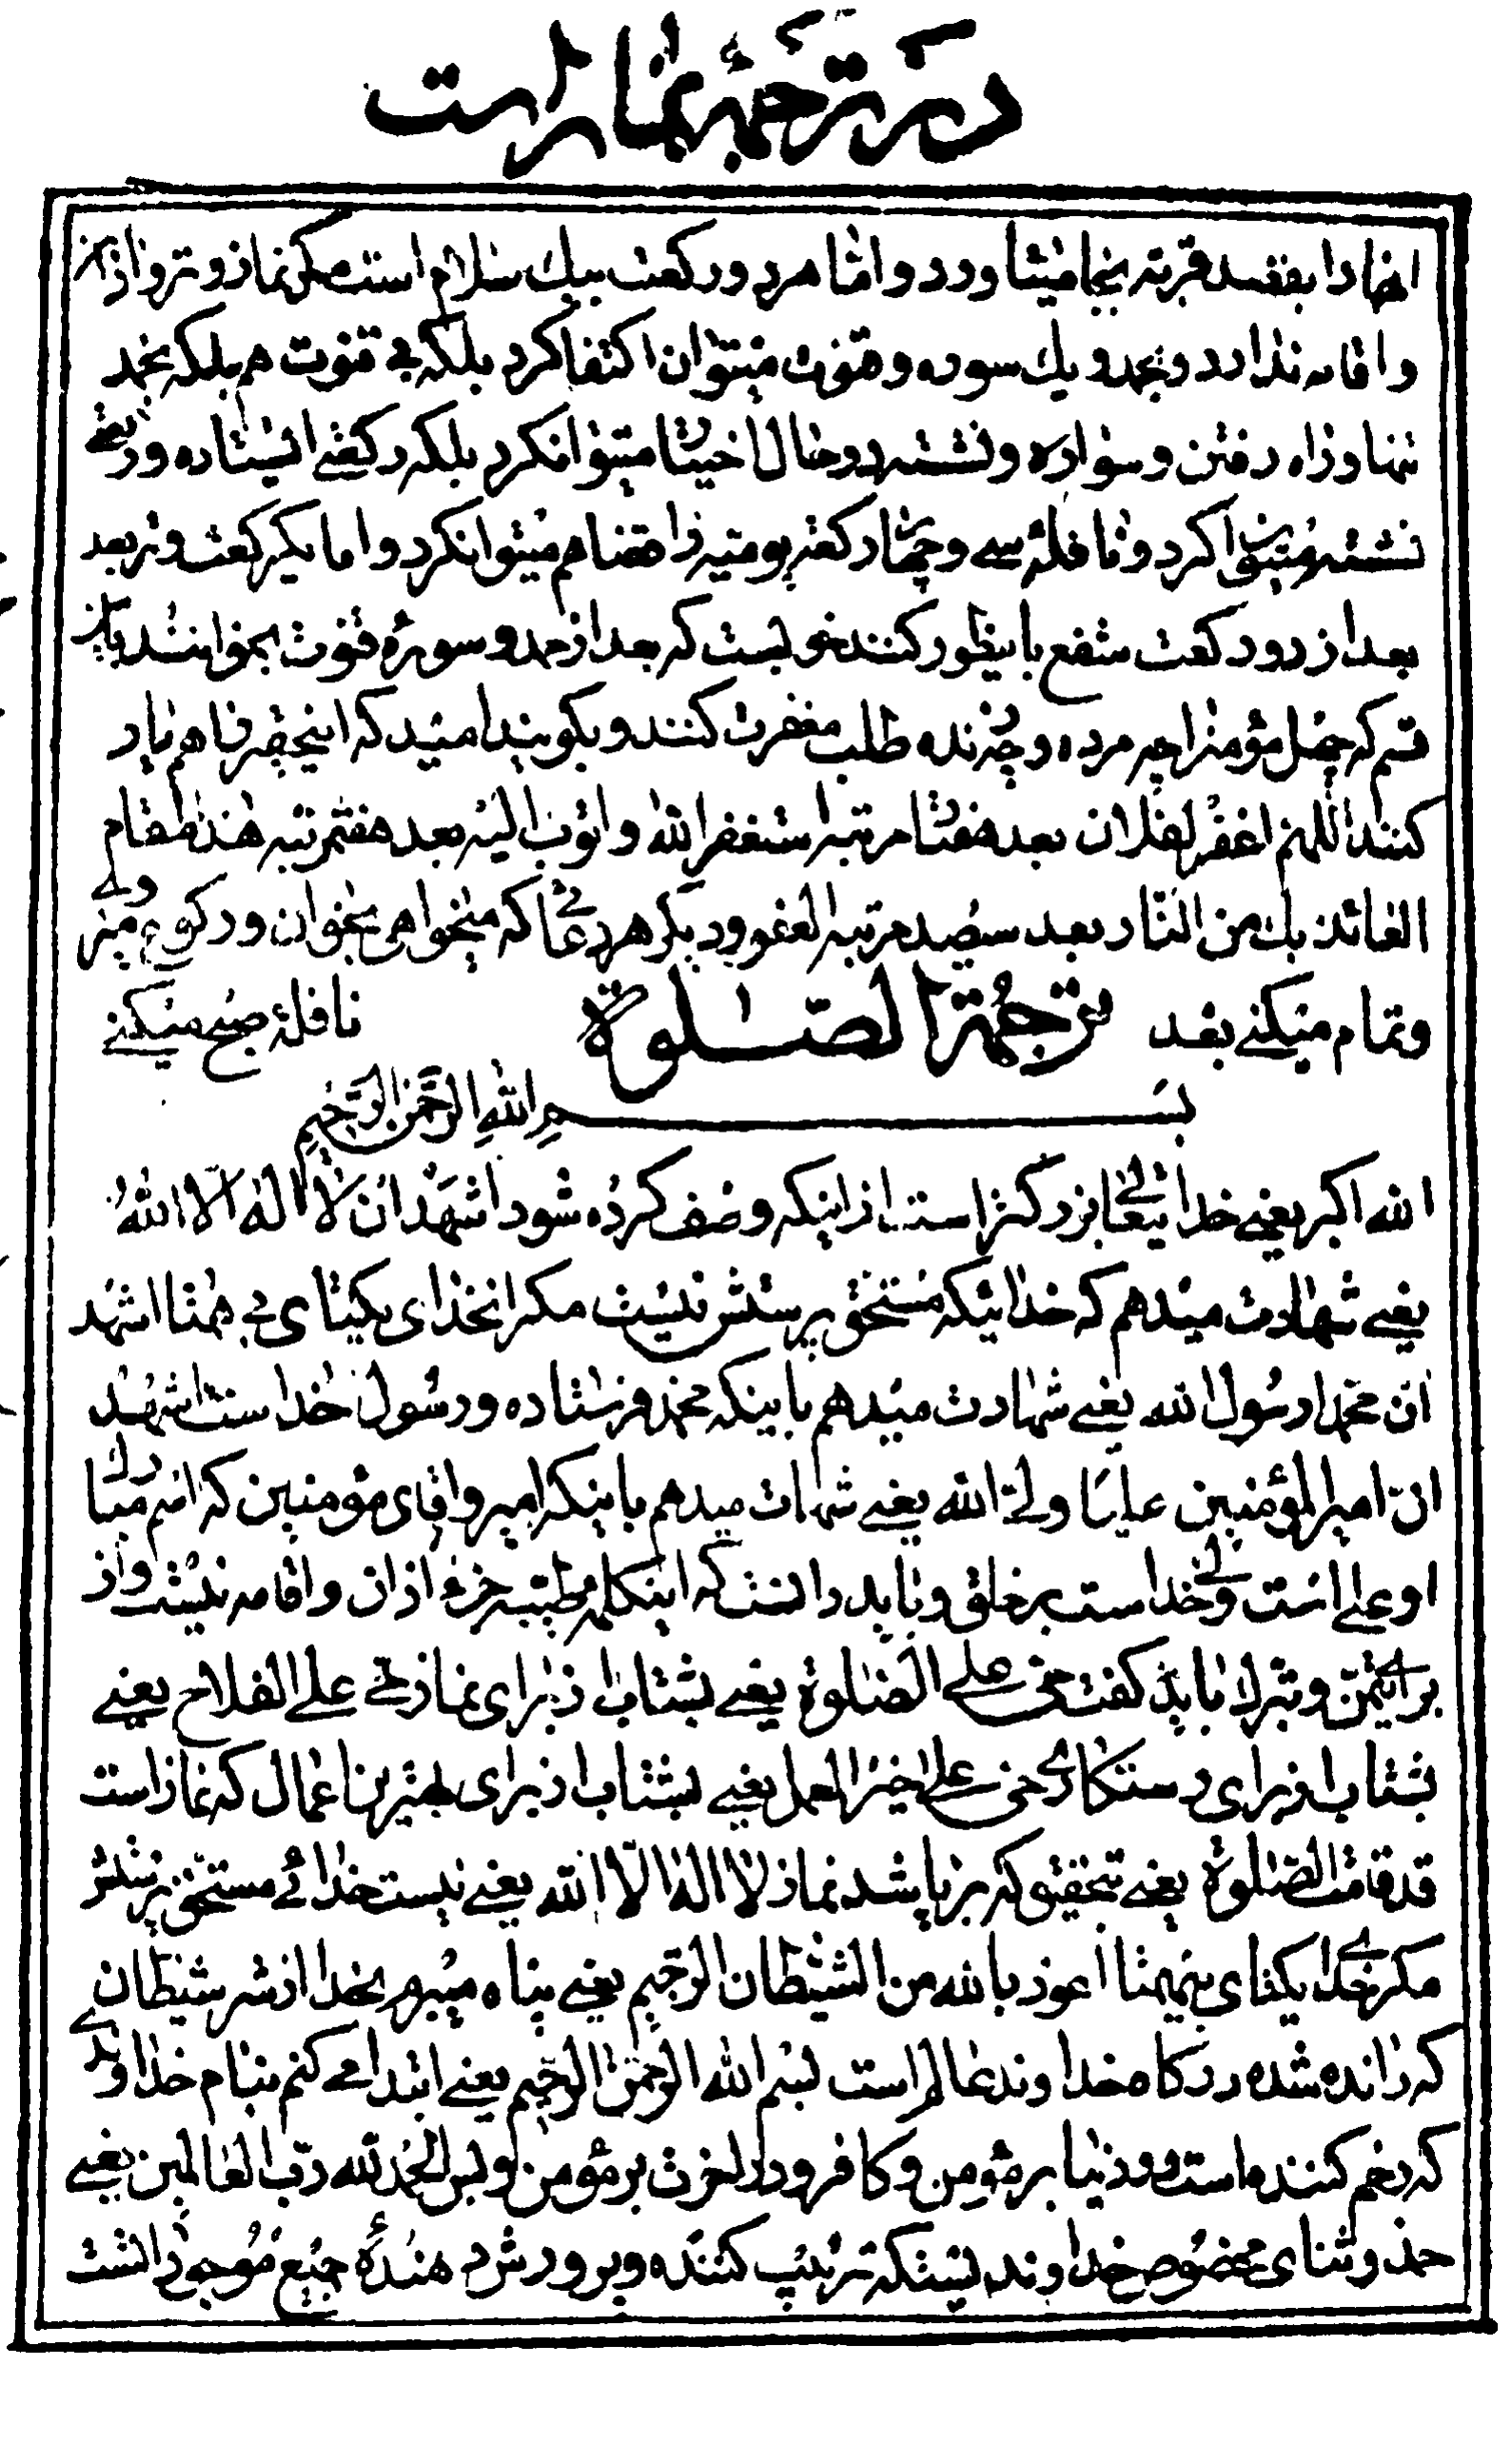 در ترجمهٔ نماز است
انها را بقصد قربة بجا میاورد و اما هر دو رکعت بیك سلام است مکر نماز وتر و اذان
و اقامه ندارد و بحمد و یك سوره و قنوت میتوان اکتفا کرد بلکه بی قنوت هم بلکه بحمد
تنها و راه رفتن و سواره و نشسته در حال اختیار میتوانکرد بلکه رکعتی ایستاده و رکعتی
نشسته میتوان کرد و نافلهٔ سی و چهار رکعت یومیه را قضا هم میتوانکرد و اما یکرکعت وتر بعد
بعد از دو رکعت شفع باینطور کنند خوبست که بعد از حمد و سوره قنوت بخوانند باین
قسم که چهل مؤمنرا چه مرده و چه زنده طلب مغفرت کنند و بکویند امید که اینحقیر را هم یاد
کنند اللهم اغفر لفلان بعد هفتاد مرتبه استغفر الله واتوب الیه بعد هفتمرتبه هذا مقام
العائذ بك من النار بعد سیصد مرتبه العفو و دیکر هر دعائی که میخواهی بخوان و رکوع میروی
و تمام میکنی بعد ترجمة الصلوة نافلهٔ صبح میکنی
بسم الله الرحمن الرحیم
الله اکبر یعنی خدایتعالی بزرکتر است از اینکه وصف کرده شود اشهد ان لا اله الا الله
یعنی شهادت میدهم که خدائیکه مستحق پرستش نیست مکر انخدای یکتای بی همتا اشهد
ان محمدا رسول الله یعنی شهادت میدهم باینکه محمد فرستاده و رسول خداست اشهد
ان امیر المؤمنین علیا ولی الله یعنی شهادت میدهم باینکه امیر و اقای مؤمنین که اسم مبارك
او علی است ولی خداست بر خلق و باید دانست که اینکلمهٔ طیبه جزء اذان و اقامه نیست و از
برای تیمن و تبرك باید کفت حی علی الصلوة یعنی بشتاب از برای نماز حی علی الفلاح یعنی
بشتاب از برای رستکاری حی علی خیر العمل یعنی بشتاب از برای بهترین اعمال که نماز است
قد قامت الصلوة یعنی بتحقیق که برپا شد نماز لا اله الا الله یعنی نیست خدائی مستحق پرستش
مکر خدای یکتای بیهمتا اعوذ بالله من الشیطان الرجیم یعنی پناه میبرم بخدا از شر شیطان
که رانده شده درکاه خداوند عالم است بسم الله الرحمن الرحیم یعنی ابتدا می کنم بنام خداوندی
که رحم کننده است در دنیا بر مؤمن و کافر و در اخرت بر مؤمن و بس الحمد لله رب العالمین یعنی
حمد و ثنای مخصوص خداوندیستکه تربیت کننده و پرورش دهندهٔ جمیع موجوداتست